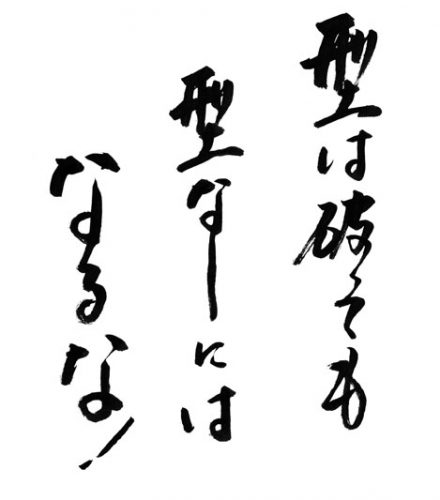 型は破っても
型なしには
なるな!